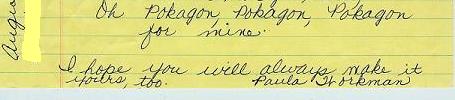 Oh Pokagon, Pokagon, Pokagon
for mine.
I hope you will always make it
yours too. Paula Workman